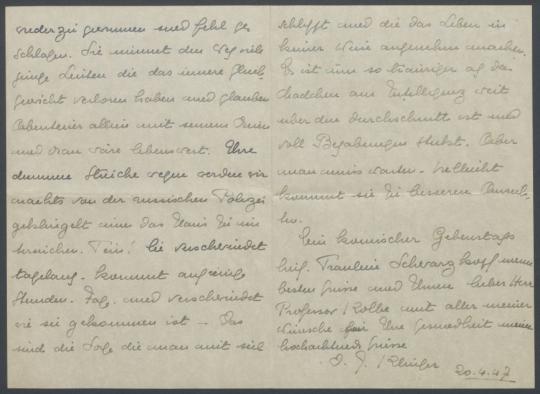 wiederzugewinnen und fehl ge
schlagen. Sie nimmt den Weg viele
junge Leuten die das innere Gleich
gewicht verloren haben und glauben
Abenteuer allein mit seinem
und wäre lebenswert. Ihre
dummen Streiche wegen werden wir
nachts von der russischen Polizei
das Haus zu
. Sie verschwindet
tagelang. kommt auf einige
Stunden. Tage. und verschwindet
wie sie gekommen ist — Das
sind die die man mit sich
schleppt und die das Leben in
keiner Weise angenehm machen.
Es ist um so trauriger als das
Mädchen an Intelligenz weit
über den Durchschnitt ist und
voll Begabungen steckt. Aber
man muss warten. Vielleicht
kommt sie zu besseren Ansich-
ten.
Ein komischer Geburtstags
brief. Fräulein Schwarzkopf meine
besten Grüsse und Ihnen lieber Herr
Professor Kolbe mit aller meiner
Wünsche für Ihre Gesundheit meine
hochachtende Grüsse
20.4.47